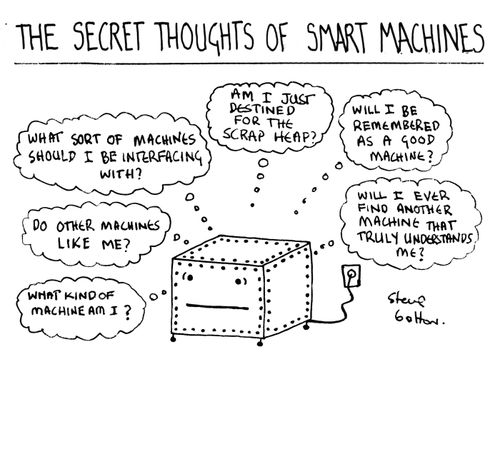 THE SECRET THOUGHTS OF SMART MACHINES
WHAT SORT OF MACHINES
SHOULD I BE INTERFACING
WITH?
AM I JUST
DESTINED
FOR THE
SCRAP HEAP?
WILL I BE
REMEMBERED
AS A GOOD
MACHINE?
DO OTHER MACHINES
LIKE ME?
WILL I EVER
FIND ANOTHER
MACHINE THAT
TRULY UNDERSTANDS
ME?
WHAT KIND OF
MACHINE AM I?
Steve